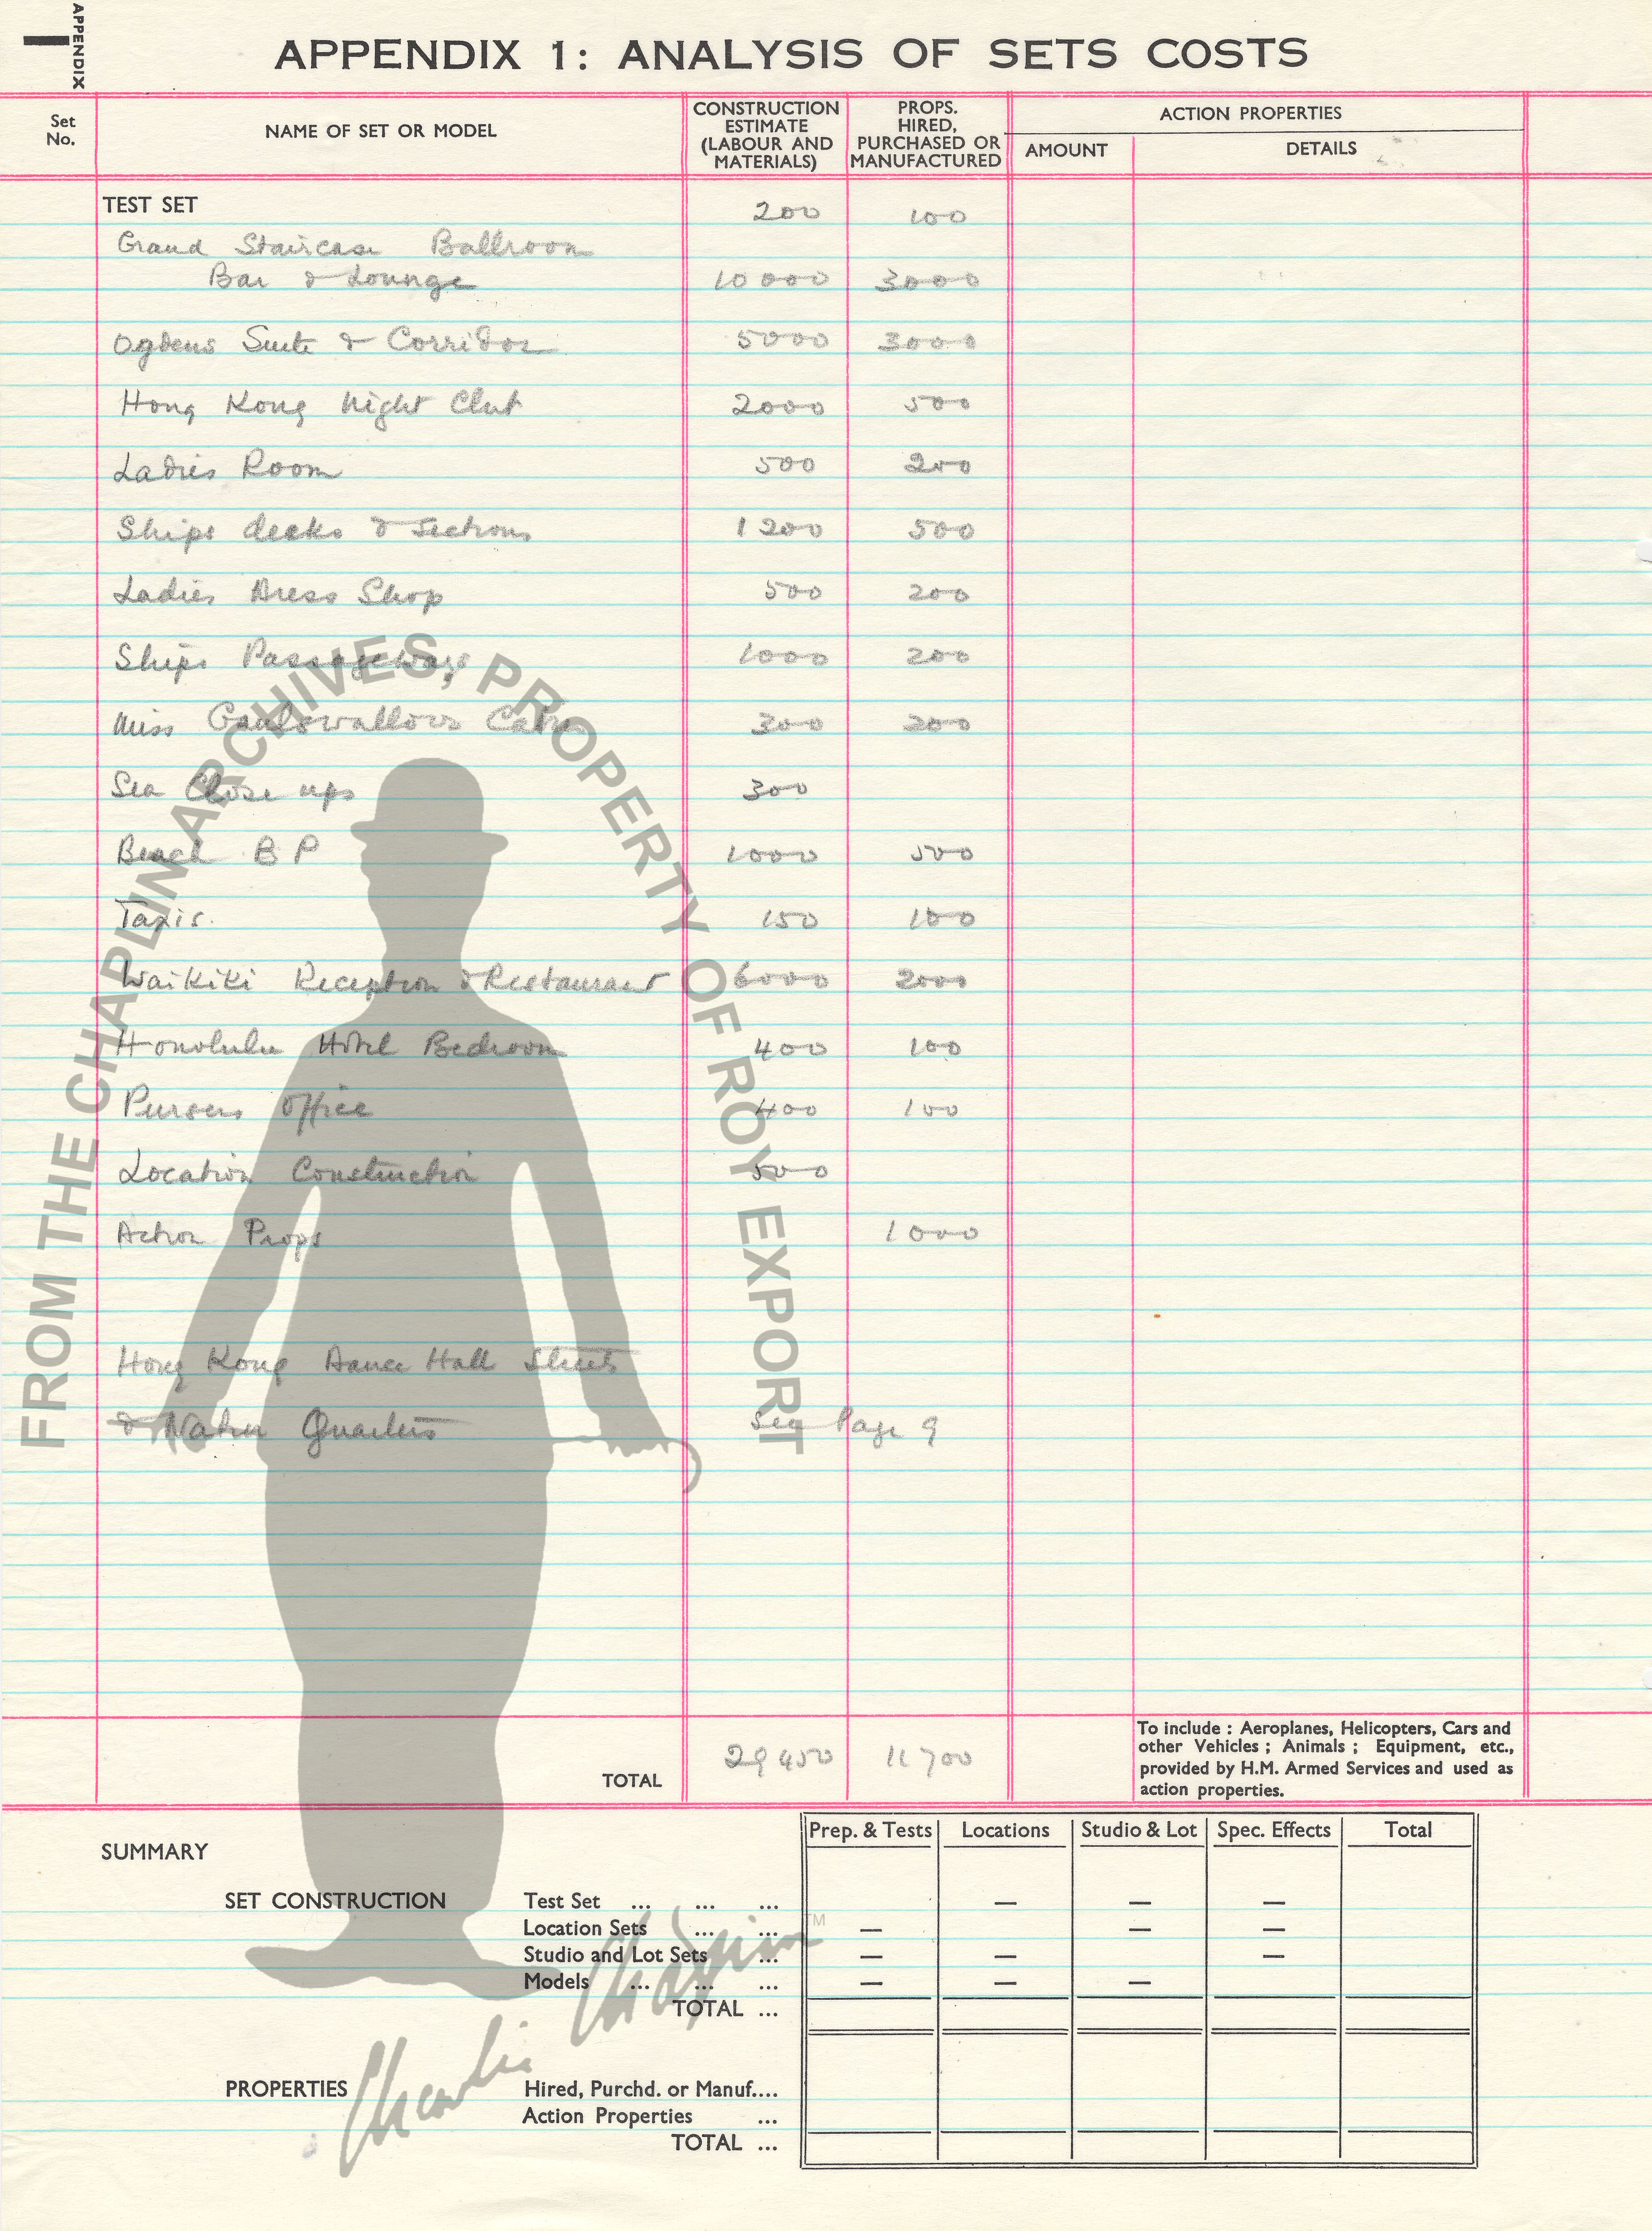 APPENDIX
1
APPENDIX 1: ANALYSIS OF SETS COSTS
Set No.
NAME OF SET OR MODEL
CONSTRUCTION ESTIMATE (LABOUR AND MATERIALS)
PROPS. HIRED, PURCHASED OR MANUFACTURED
ACTION PROPERTIES
AMOUNT
DETAILS
TEST SET 200 100
Grand Staircase Ballroom
Bar & Lounge 10 000 3000
Ogdens Suite & Corridor 5000 3000
Hong Kong Night Club 2000 500
Ladies Room 500 200
Ships decks & Sections 1 200 500
Ladies Dress Shop 500 200
Ships Passageways 1000 200
Miss Gaulswallows Cabin 300 200
Sea Close ups 300
Beach B P 1000 500
Taxis. 150 100
Waikiki Reception & Restaurant 6000 2000
Honolulu Hotel Bedroom 400 100
Pursers Office 400 100
Location Construction 500
Action Props 1000
Hong Kong Dance Hall Streets
& Native Quarters See Page 9
TOTAL 29 450 11 700
To include : Aeroplanes, Helicopters, Cars and
other Vehicles ; Animals ; Equipment, etc.,
provided by H.M. Armed Services and used as
action properties.
SUMMARY
Prep. & Tests Locations Studio & Lot Spec. Effects Total
SET CONSTRUCTION Test Set ... ... ... — — —
Location Sets ... ... — — —
Studio and Lot Sets ... — — —
Models ... ... ... — — —
TOTAL ...
PROPERTIES Hired, Purchd. or Manuf....
Action Properties ...
TOTAL ...
FROM THE CHAPLIN ARCHIVES, PROPERTY OF ROY EXPORT
Charlie Chaplin TM